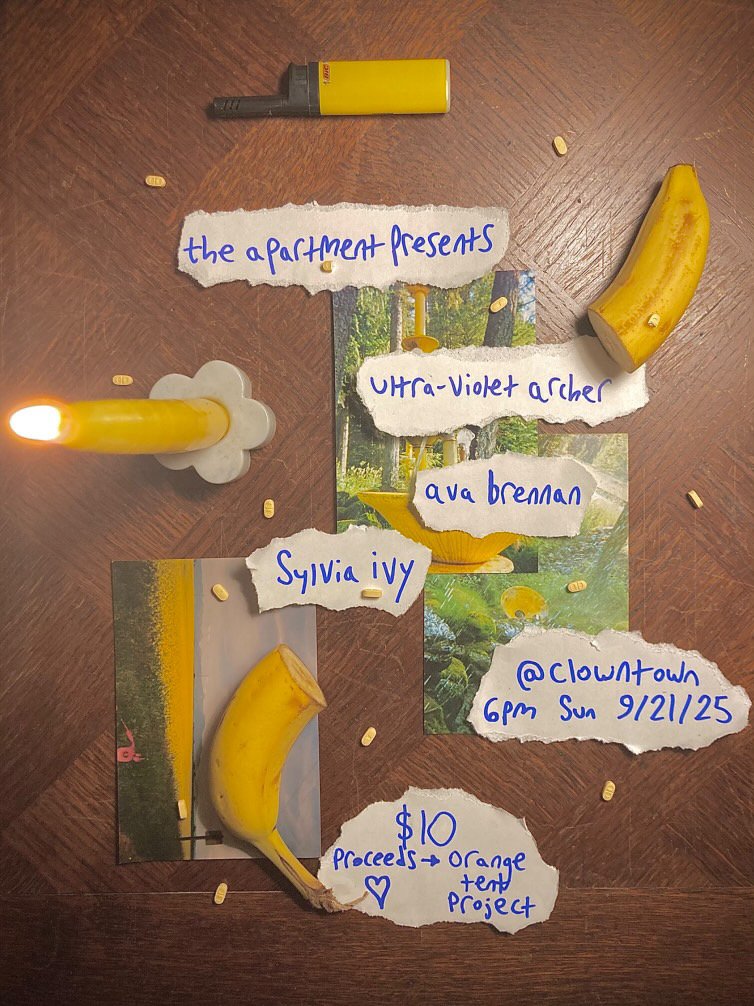 BIC
the apartment presents
ultra-violet archer
ava brennan
Sylvia ivy
@clowntown
6pm Sun 9/21/25
$10
proceeds → orange
♡ tent
project